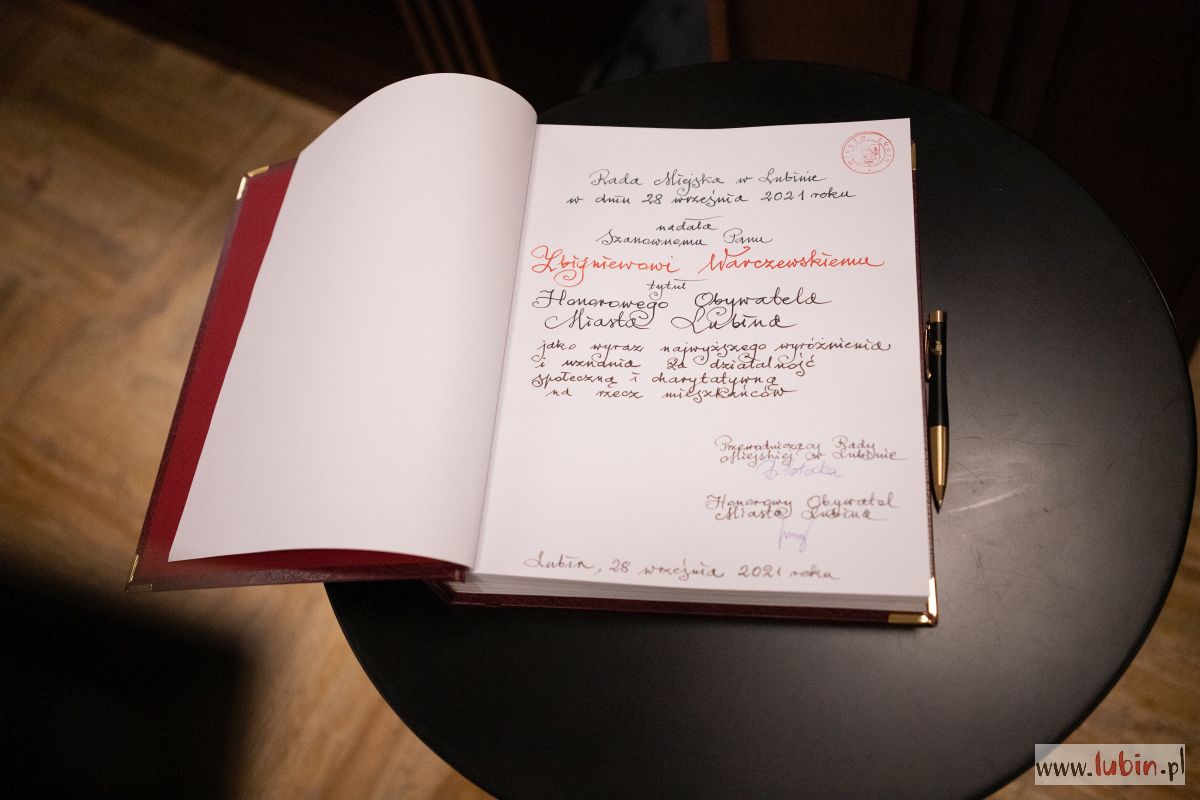 MIASTO LUBIN
Rada Miejska w Lubinie
w dniu 28 września 2021 roku
nadała
Szanownemu Panu
Zbigniewowi Warczewskiemu
tytuł
Honorowego Obywatela
Miasta Lubina
jako wyraz najwyższego wyróżnienia
i uznania za działalność
społeczną i charytatywną
na rzecz mieszkańców
Przewodniczący Rady
Miejskiej w Lubinie
Honorowy Obywatel
Miasta Lubina
Lubin, 28 września 2021 roku
www.lubin.pl